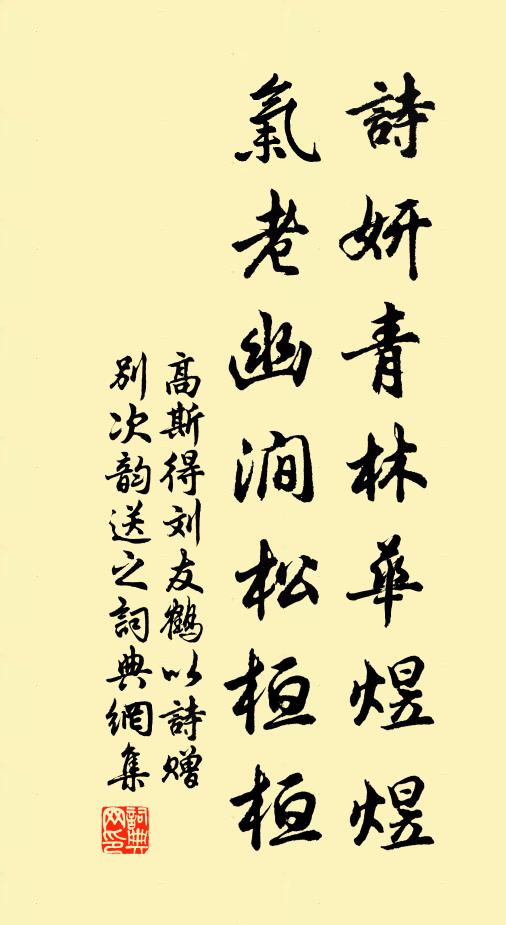 詩妍青林華煜煜
氣老幽澗松桓桓
高斯得刘友鶴以詩赠
别次韵送之詞典網集
詞典
网印